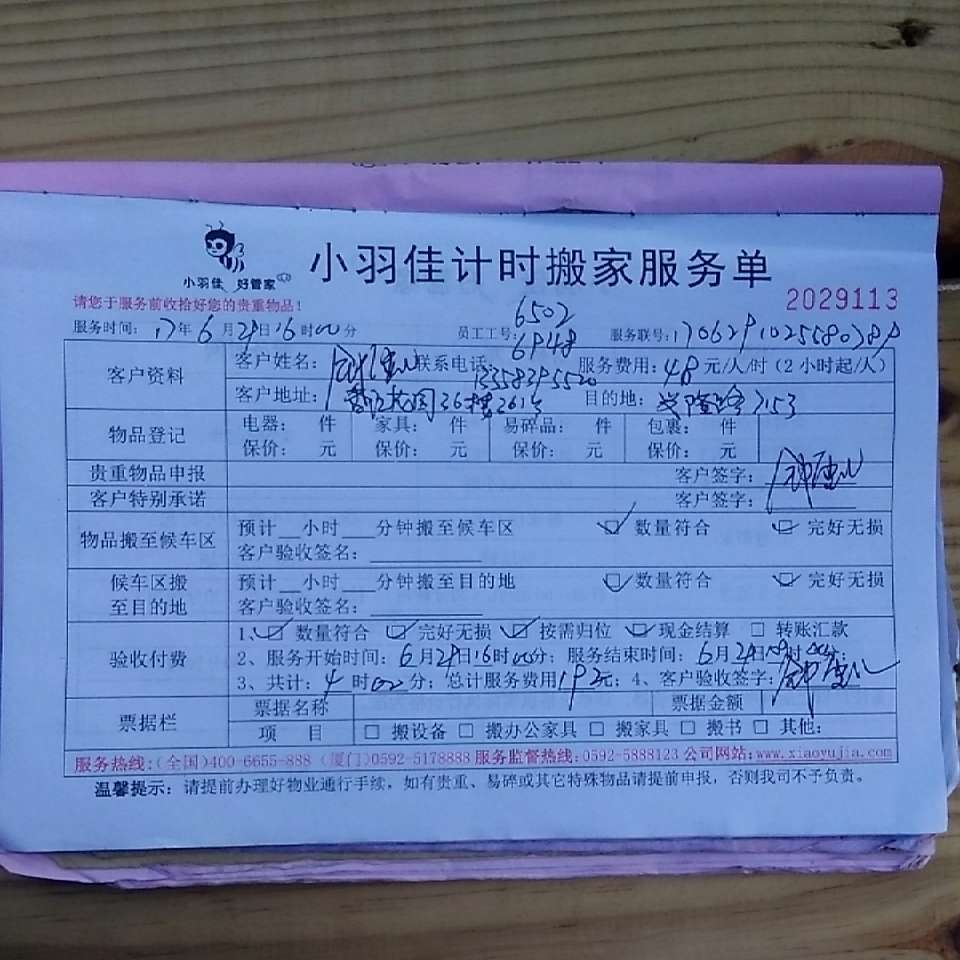 小羽佳 好管家
小羽佳计时搬家服务单
2029113
请您于服务前收拾好您的贵重物品!
6502
服务时间: 17年6月29日16时00分 员工工号: 6948 服务联号:
客户资料
客户姓名: 联系电话: 13558395520 服务费用: 48元/人/时(2小时起/人)
客户地址: 36楼261号 目的地: 兴隆路
物品登记
电器: 件 家具: 件 易碎品: 件 包裹: 件
保价: 元 保价: 元 保价: 元 保价: 元
贵重物品申报 客户签字:
客户特别承诺 客户签字:
物品搬至候车区
预计__小时___分钟搬至候车区 ☑数量符合 ☑完好无损
客户验收签名:
候车区搬至目的地
预计__小时___分钟搬至目的地 ☑数量符合 ☑完好无损
客户验收签名:
验收付费
1、☑数量符合 ☑完好无损 ☑按需归位 ☑现金结算 □转账汇款
2、服务开始时间: 6月29日16时00分; 服务结束时间: 6月29日 时00分;
3、共计: 4时00分; 总计服务费用192元; 4、客户验收签字:
票据栏
票据名称 票据金额
项 目 □搬设备 □搬办公家具 □搬家具 □搬书 □其他:
服务热线:(全国)400-6655-888 (厦门)0592-5178888 服务监督热线:0592-5888123 公司网站:www.xiaoyujia.com
温馨提示: 请提前办理好物业通行手续, 如有贵重、易碎或其它特殊物品请提前申报, 否则我司不予负责。